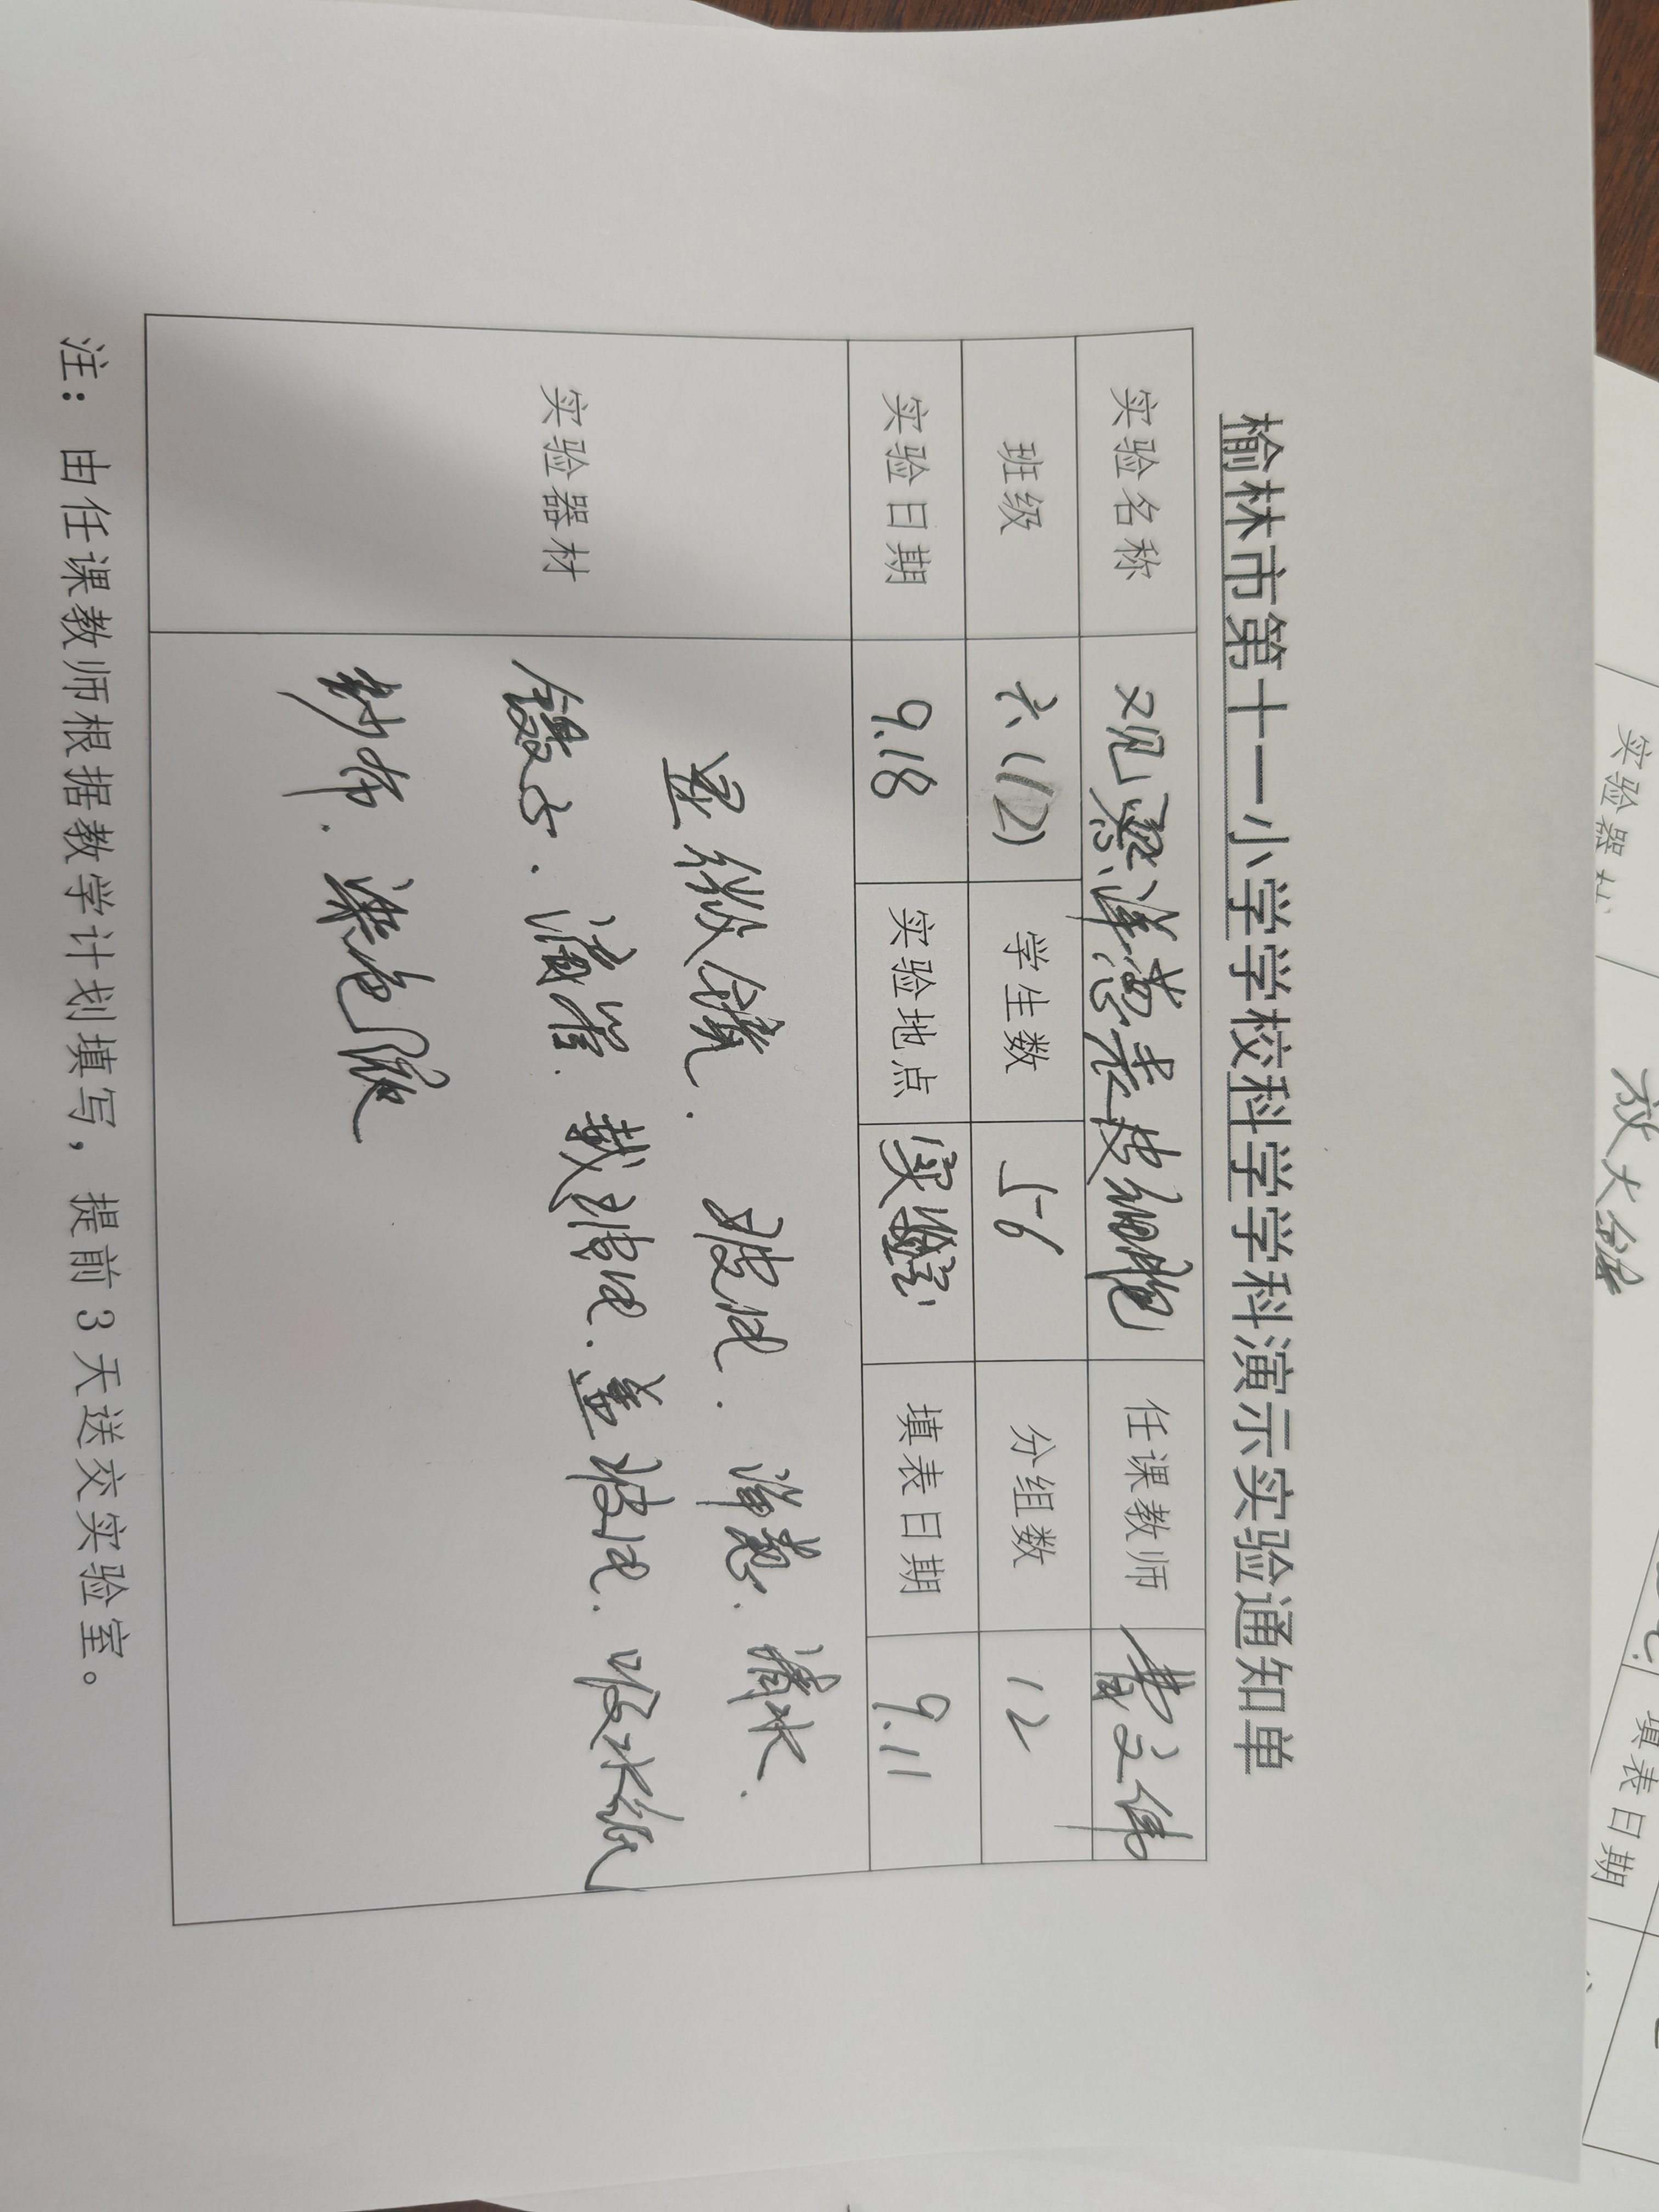 榆林市第十一小学学校科学学科演示实验通知单
实验名称 观察洋葱表皮细胞 任课教师 曹文伟
班级 六(12) 学生数 56 分组数 12
实验日期 9.18 实验地点 实验室 填表日期 9.11
实验器材
显微镜. 玻璃. 洋葱. 清水.
镊子. 滴管. 载玻片. 盖玻片. 吸水纸
纱布. 染色液
注：由任课教师根据教学计划填写，提前3天送交实验室。
实验器材
放大镜
填表日期